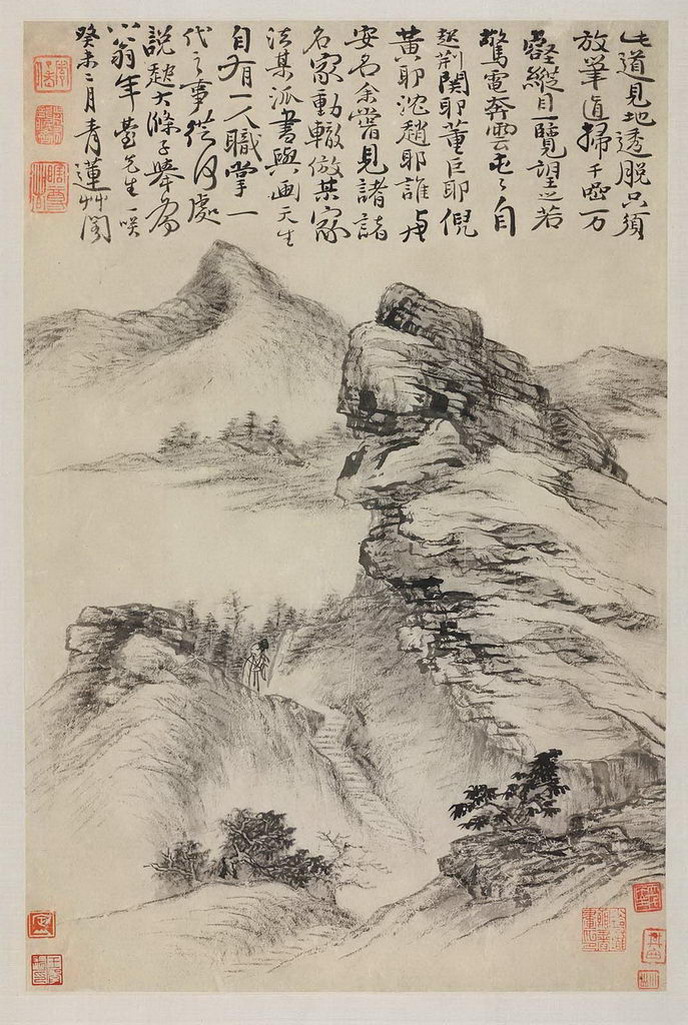 此道見地透脫只須
放筆直掃千嵒万
壑縱目一覽望之若
驚電奔雲屯屯自
起荊關耶董巨耶倪
黃耶沈趙耶誰与
安名余嘗見諸諸
名家動轍倣某家
法某派書與画天生
自有一人職掌一
代之事從何處
說起大滌子舉為
翁年臺先生一咲
癸未二月青蓮艸閣